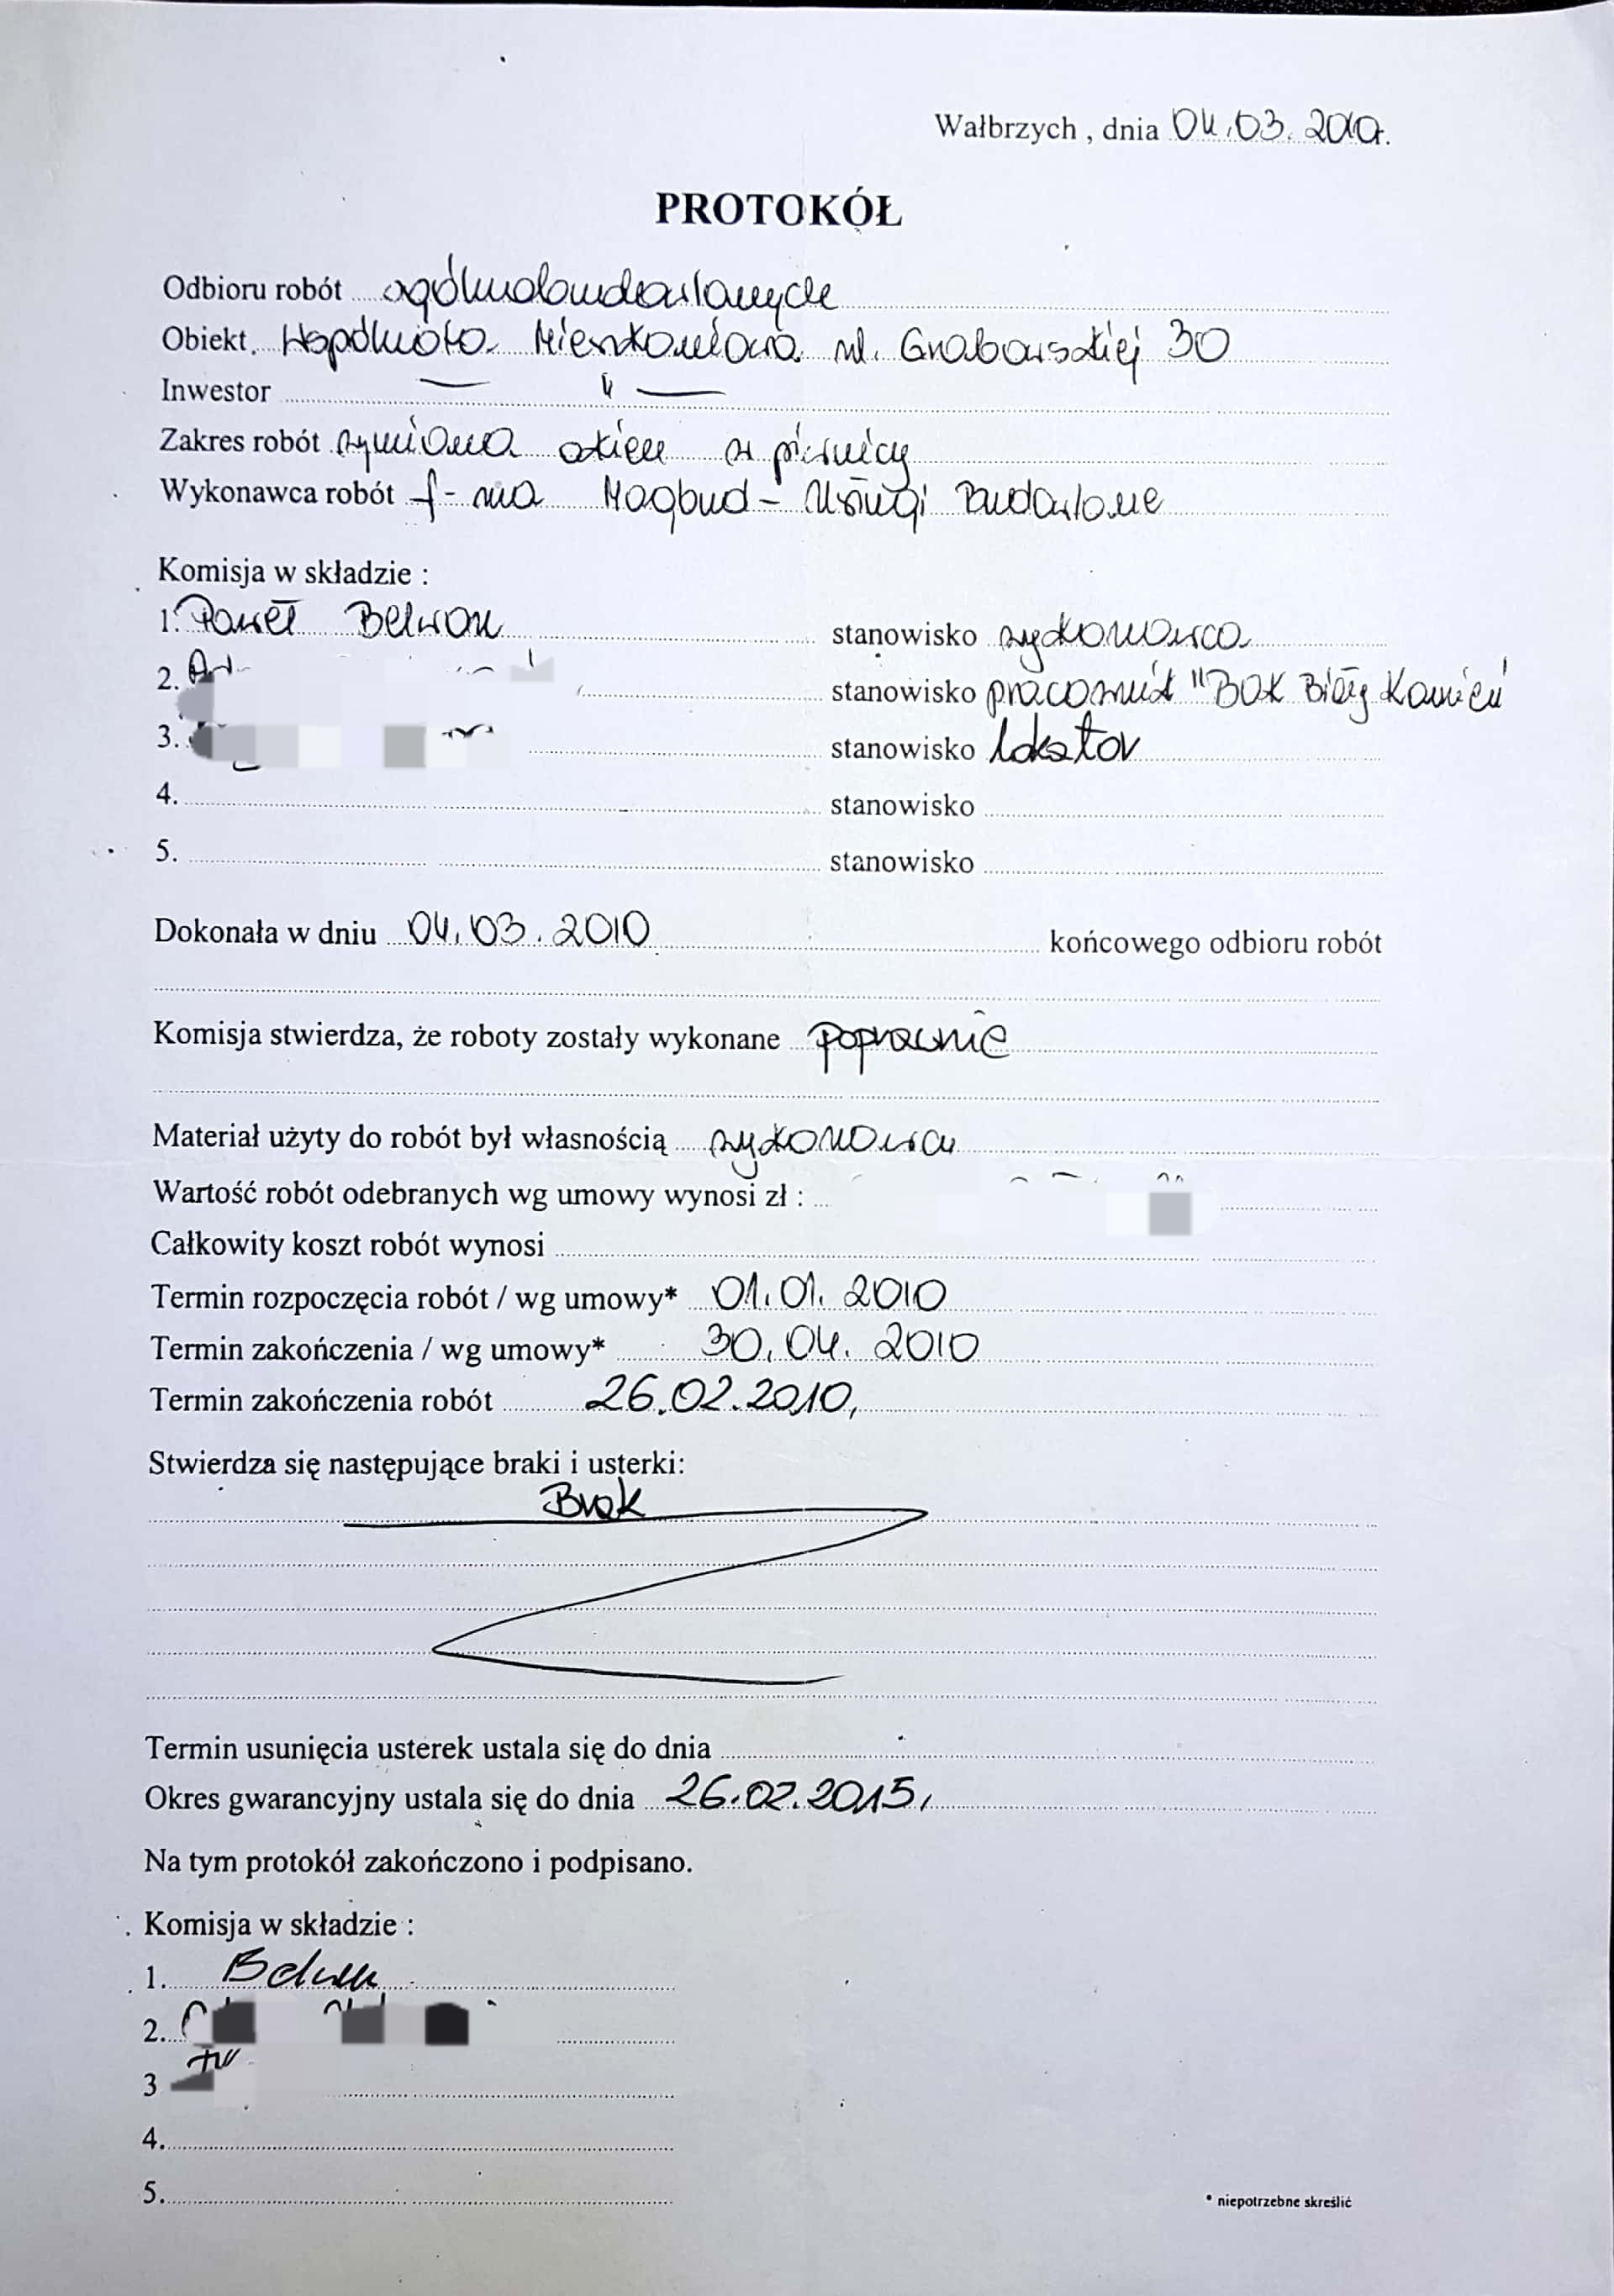 Wałbrzych, dnia 04.03.2010r.
PROTOKÓŁ
Odbioru robót ogólnobudowlanych
Obiekt. Wspólnota Mieszkaniowa ul. Grabowskiej 30
Inwestor — " —
Zakres robót wymiana okien w piwnicy
Wykonawca robót f-ma Magbud - Usługi Budowlane
Komisja w składzie :
1. Paweł Belwon stanowisko wykonawca
2. stanowisko pracownik "BOK Biały Kamień"
3. stanowisko lokator
4. stanowisko
5. stanowisko
Dokonała w dniu 04.03.2010 końcowego odbioru robót
Komisja stwierdza, że roboty zostały wykonane poprawnie
Materiał użyty do robót był własnością wykonawcy
Wartość robót odebranych wg umowy wynosi zł :
Całkowity koszt robót wynosi
Termin rozpoczęcia robót / wg umowy* 01.01.2010
Termin zakończenia / wg umowy* 30.04.2010
Termin zakończenia robót 26.02.2010,
Stwierdza się następujące braki i usterki:
Brak
Termin usunięcia usterek ustala się do dnia
Okres gwarancyjny ustala się do dnia 26.02.2015,
Na tym protokół zakończono i podpisano.
Komisja w składzie :
1.
2.
3
4.
5.
* niepotrzebne skreślić